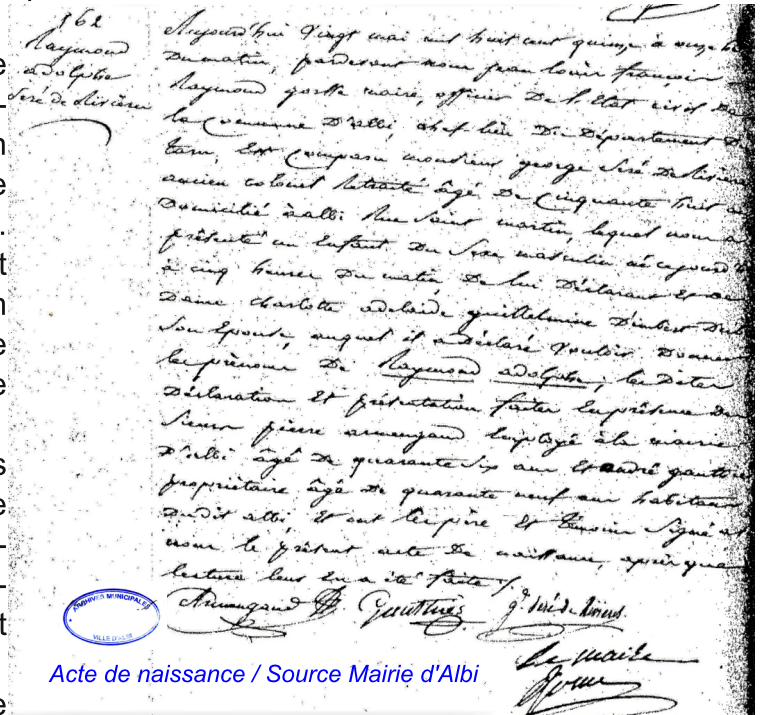 162
Raymond
adolphe
Seré de Rivières
Aujourd'hui vingt mai mil huit cent quinze à onze he
Du matin, pardevant nous jean louis françois
Raymond gorsse maire, officier De l'Etat civil De
la Commune D'albi, chef lieu Du Département Du
tarn, Est Comparu monsieur george Seré De Rivières
ancien colonel Retraité âgé De Cinquante huit an
Domicilié à albi Rue Saint martin, lequel nous a
présenté un Enfant Du Sexe masculin né cejourd'h
à cinq heures Du matin, De lui Déclarant Et De
Dame charlotte adelaide guillelmine D'imbert
Son Epouse, auquel il a Déclaré Vouloir Donner
les prénoms De Raymond adolphe; les Dites
Déclaration Et présentation faites En présence Des
Sieurs pierre armengaud Employé à la mairie
D'albi âgé De quarante Six ans Et andré
propriétaire âgé De quarante neuf ans habitans
Dudit albi, Et ont les père Et témoins Signé a
nous le présent acte De naissance, après que
lecture leur En a été faite /.
Armengaud
g. Seré de Rivieres.
Le maire
ARCHIVES MUNICIPALES
VILLE D'ALBI
Acte de naissance / Source Mairie d'Albi